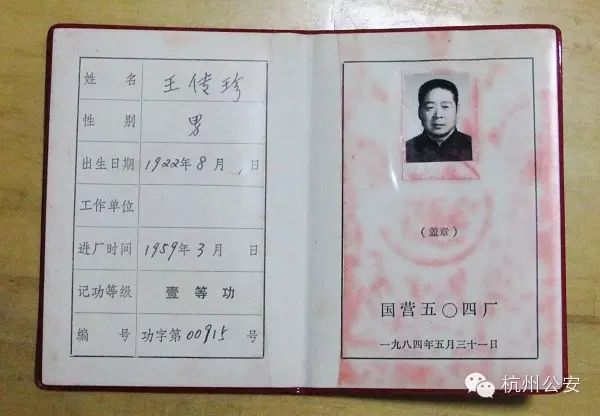 姓名 王传珍
性别 男
出生日期 1922年8月 日
工作单位
进厂时间 1959年3月 日
记功等级 壹等功
编号 功字第00915号
（盖章）
国营五〇四厂
一九八四年五月三十一日
杭州公安